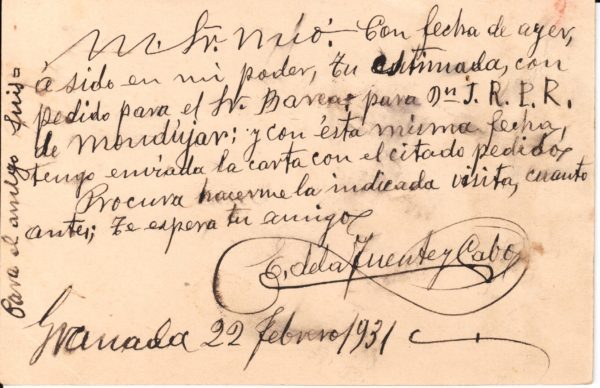 M. Sr. mío: Con fecha de ayer,
á sido en mi poder, tu estimada, con
pedido para el Sr. Barea; para Dn J. R. P. R.
de Mondújar; y con ésta misma fecha,
tengo enviada la carta con el citado pedido
Procura hacerme la indicada visita, cuanto
antes; Te espera tu amigo
E. de la Fuente y Cabo
Granada 22 Febrero 1931
Para el amigo Luis